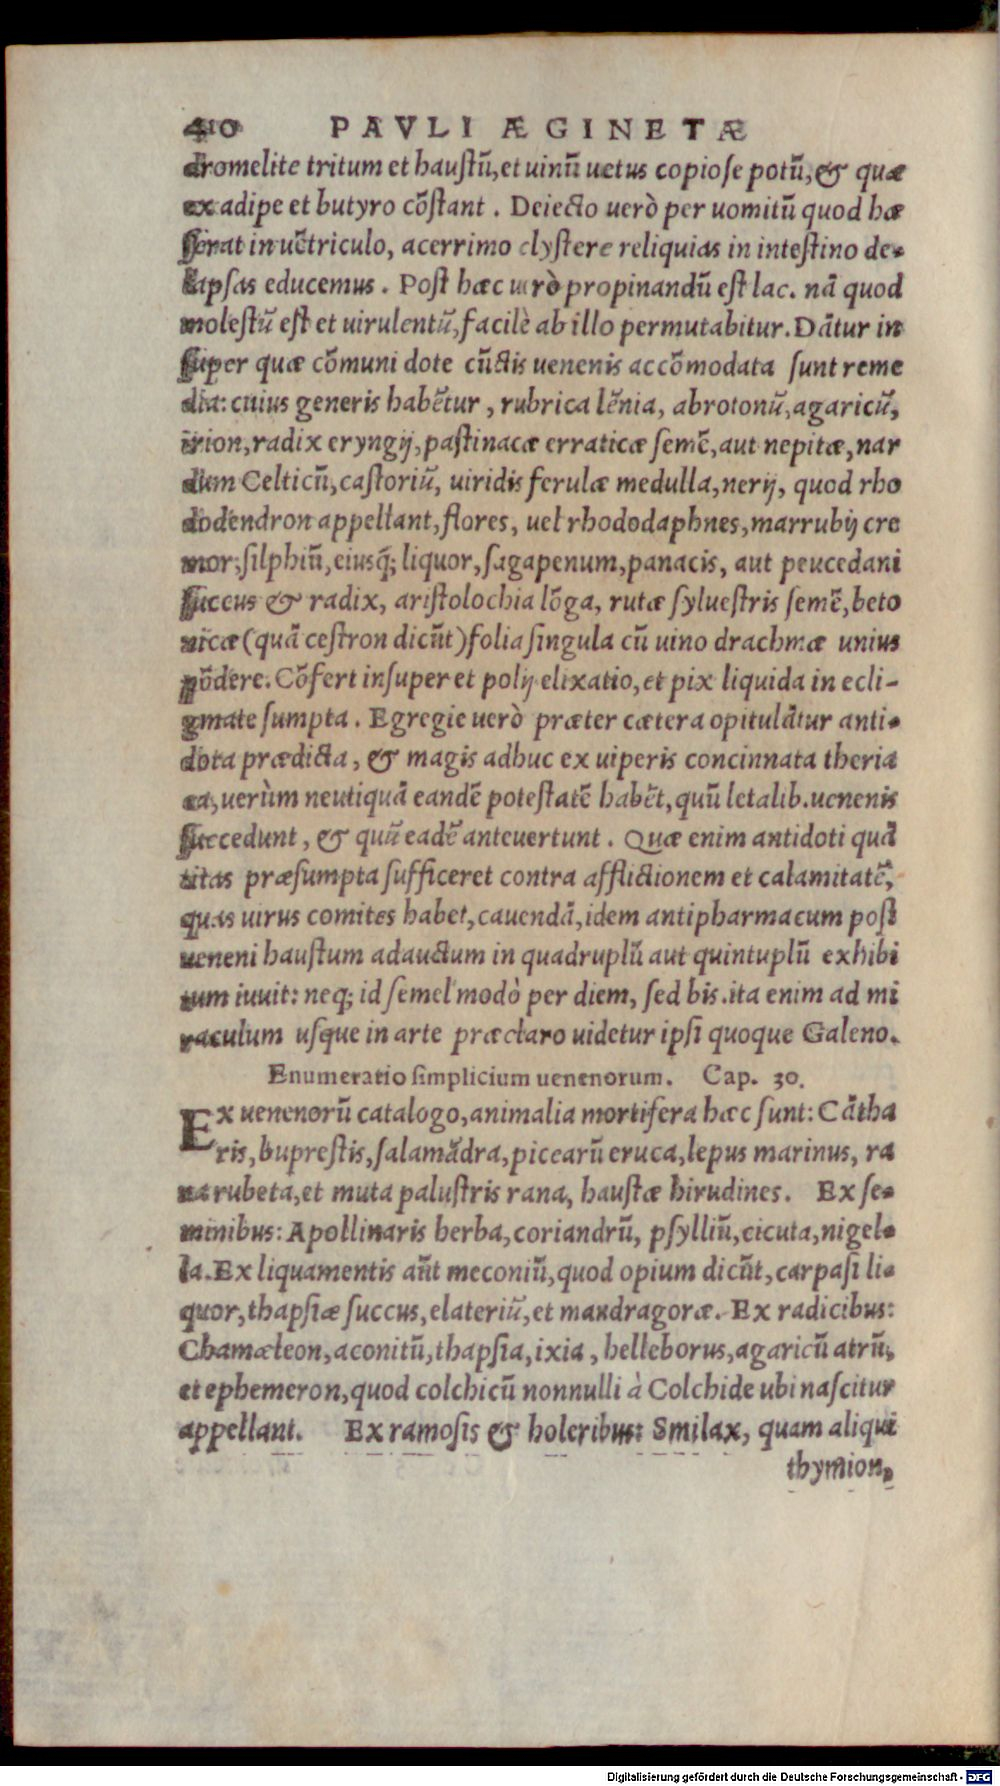 410 PAVLI ÆGINETÆ
dromelite tritum et haustū, et uinū uetus copiose potū, & quæ
ex adipe et butyro cōstant. Deiecto uerò per uomitū quod hæ
serat in uētriculo, acerrimo clystere reliquias in intestino de-
lapsas educemus. Post hæc uerò propinandū est lac. nā quod
molestū est et uirulentū, facilè ab illo permutabitur. Dātur in
super quæ cōmuni dote cūctis uenenis accōmodata sunt reme
dia: cuius generis habētur, rubrica lēnia, abrotonū, agaricū,
irion, radix eryngij, pastinacæ erraticæ semē, aut nepitæ, nar
dum Celticū, castoriū, uiridis ferulæ medulla, nerij, quod rho
dodendron appellant, flores, uel rhododaphnes, marrubij cre
mor, silphiū, eiusq; liquor, sagapenum, panacis, aut peucedani
succus & radix, aristolochia lōga, rutæ syluestris semē, beto
nicæ (quā cestron dicūt) folia singula cū uino drachmæ unius
pōdere. Cōfert insuper et polij elixatio, et pix liquida in ecli-
gmate sumpta. Egregie uerò præter cætera opitulātur anti-
dota prædicta, & magis adhuc ex uiperis concinnata theria
ca, uerùm neutiquā eandē potestatē habēt, quū letalib. uenenis
succedunt, & quū eadē anteuertunt. Quæ enim antidoti quā
titas præsumpta sufficeret contra afflictionem et calamitatē,
quas uirus comites habet, cauendā, idem antipharmacum post
ueneni haustum adauctum in quadruplū aut quintuplū exhibi
tum iuuit: neq; id semel modò per diem, sed bis. ita enim ad mi
raculum usque in arte præclaro uidetur ipsi quoque Galeno.
Enumeratio simplicium uenenorum. Cap. 30.
Ex uenenorū catalogo, animalia mortifera hæc sunt: Cātha
ris, buprestis, salamādra, picearū eruca, lepus marinus, ra
na rubeta, et muta palustris rana, haustæ hirudines. Ex se-
minibus: Apollinaris herba, coriandrū, psylliū, cicuta, nigel-
la. Ex liquamentis aūt meconiū, quod opium dicūt, carpasi li-
quor, thapsiæ succus, elateriū, et mandragoræ. Ex radicibus:
Chamæleon, aconitū, thapsia, ixia, helleborus, agaricū atrū,
et ephemeron, quod colchicū nonnulli à Colchide ubi nascitur
appellant. Ex ramosis & holeribus: Smilax, quam aliqui
thymion,
Digitalisierung gefördert durch die Deutsche Forschungsgemeinschaft - DFG